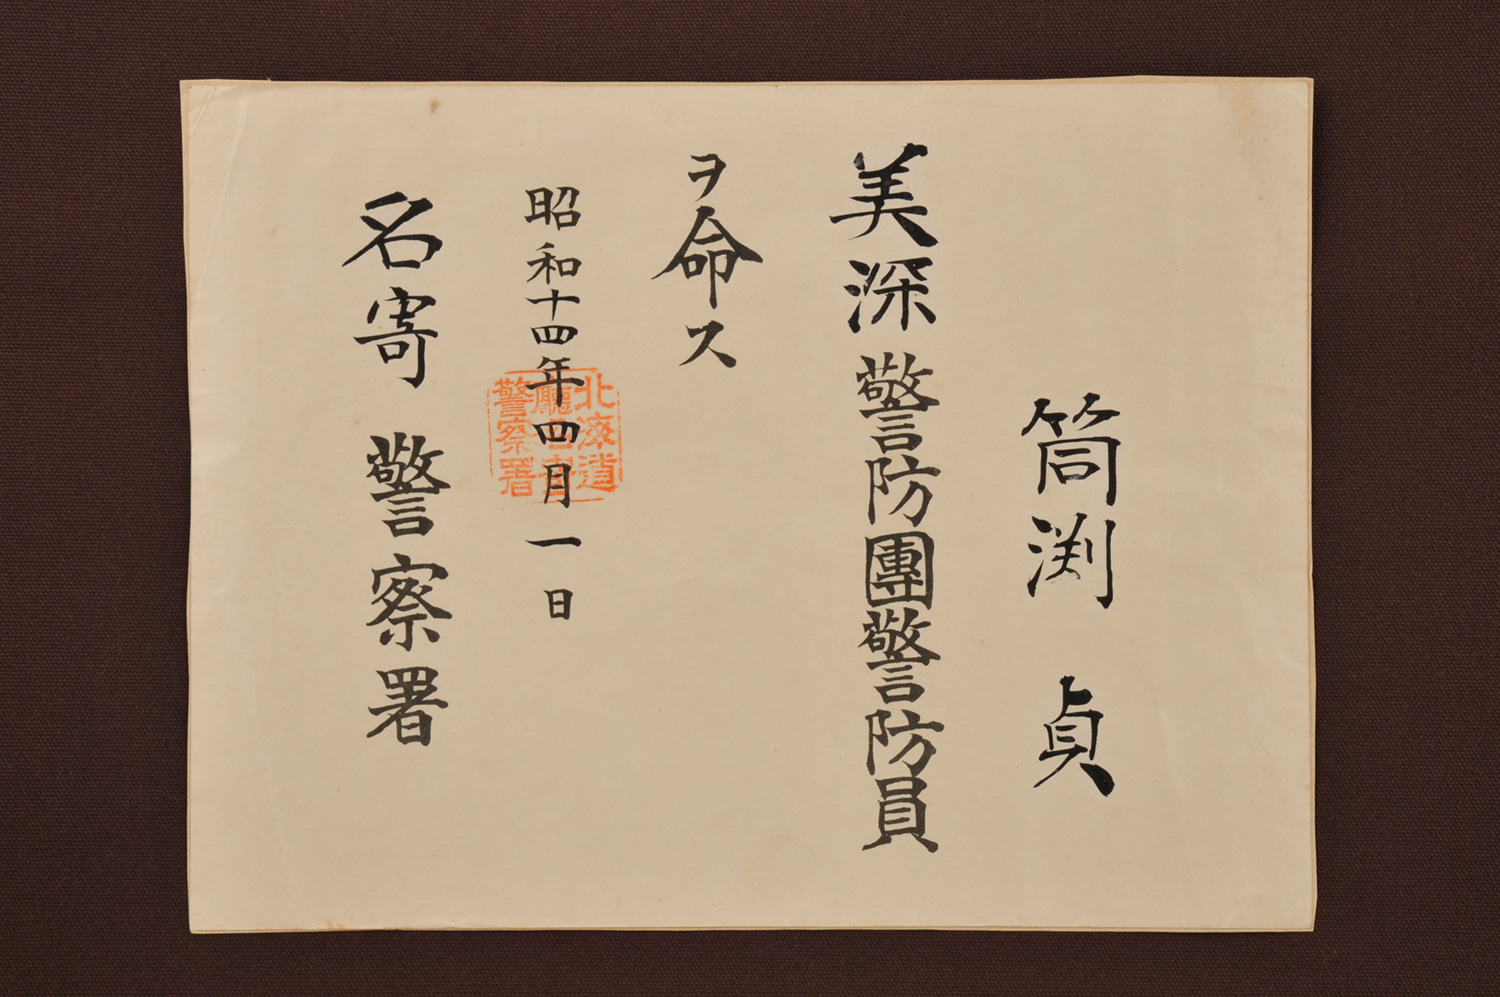 筒渕 貞
美深警防團警防員
ヲ命ス
昭和十四年四月一日
北海道
廳名寄
警察署
名寄警察署